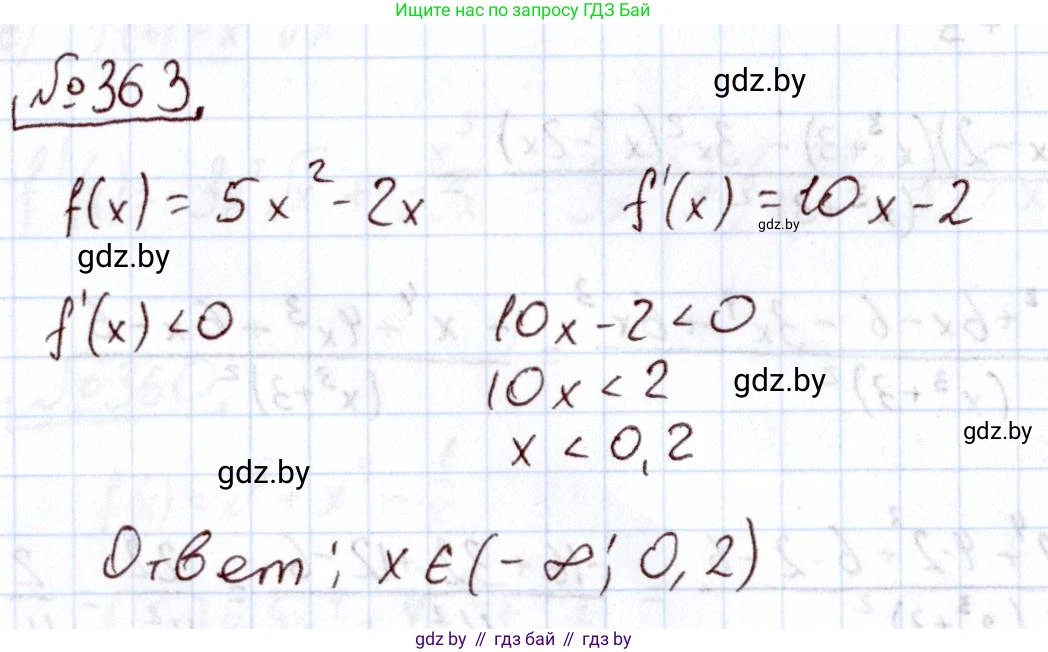 Ищите нас по запросу ГДЗ Бай
№363.
gdz.by
f(x) = 5x² - 2x f'(x) = 10x - 2
gdz.by
gdz.by
f'(x) < 0 10x - 2 < 0
10x < 2
gdz.by
x < 0,2
gdz.by
gdz.by
Ответ: x ∈ (-∞; 0,2)
gdz.by // гдз бай // гдз by